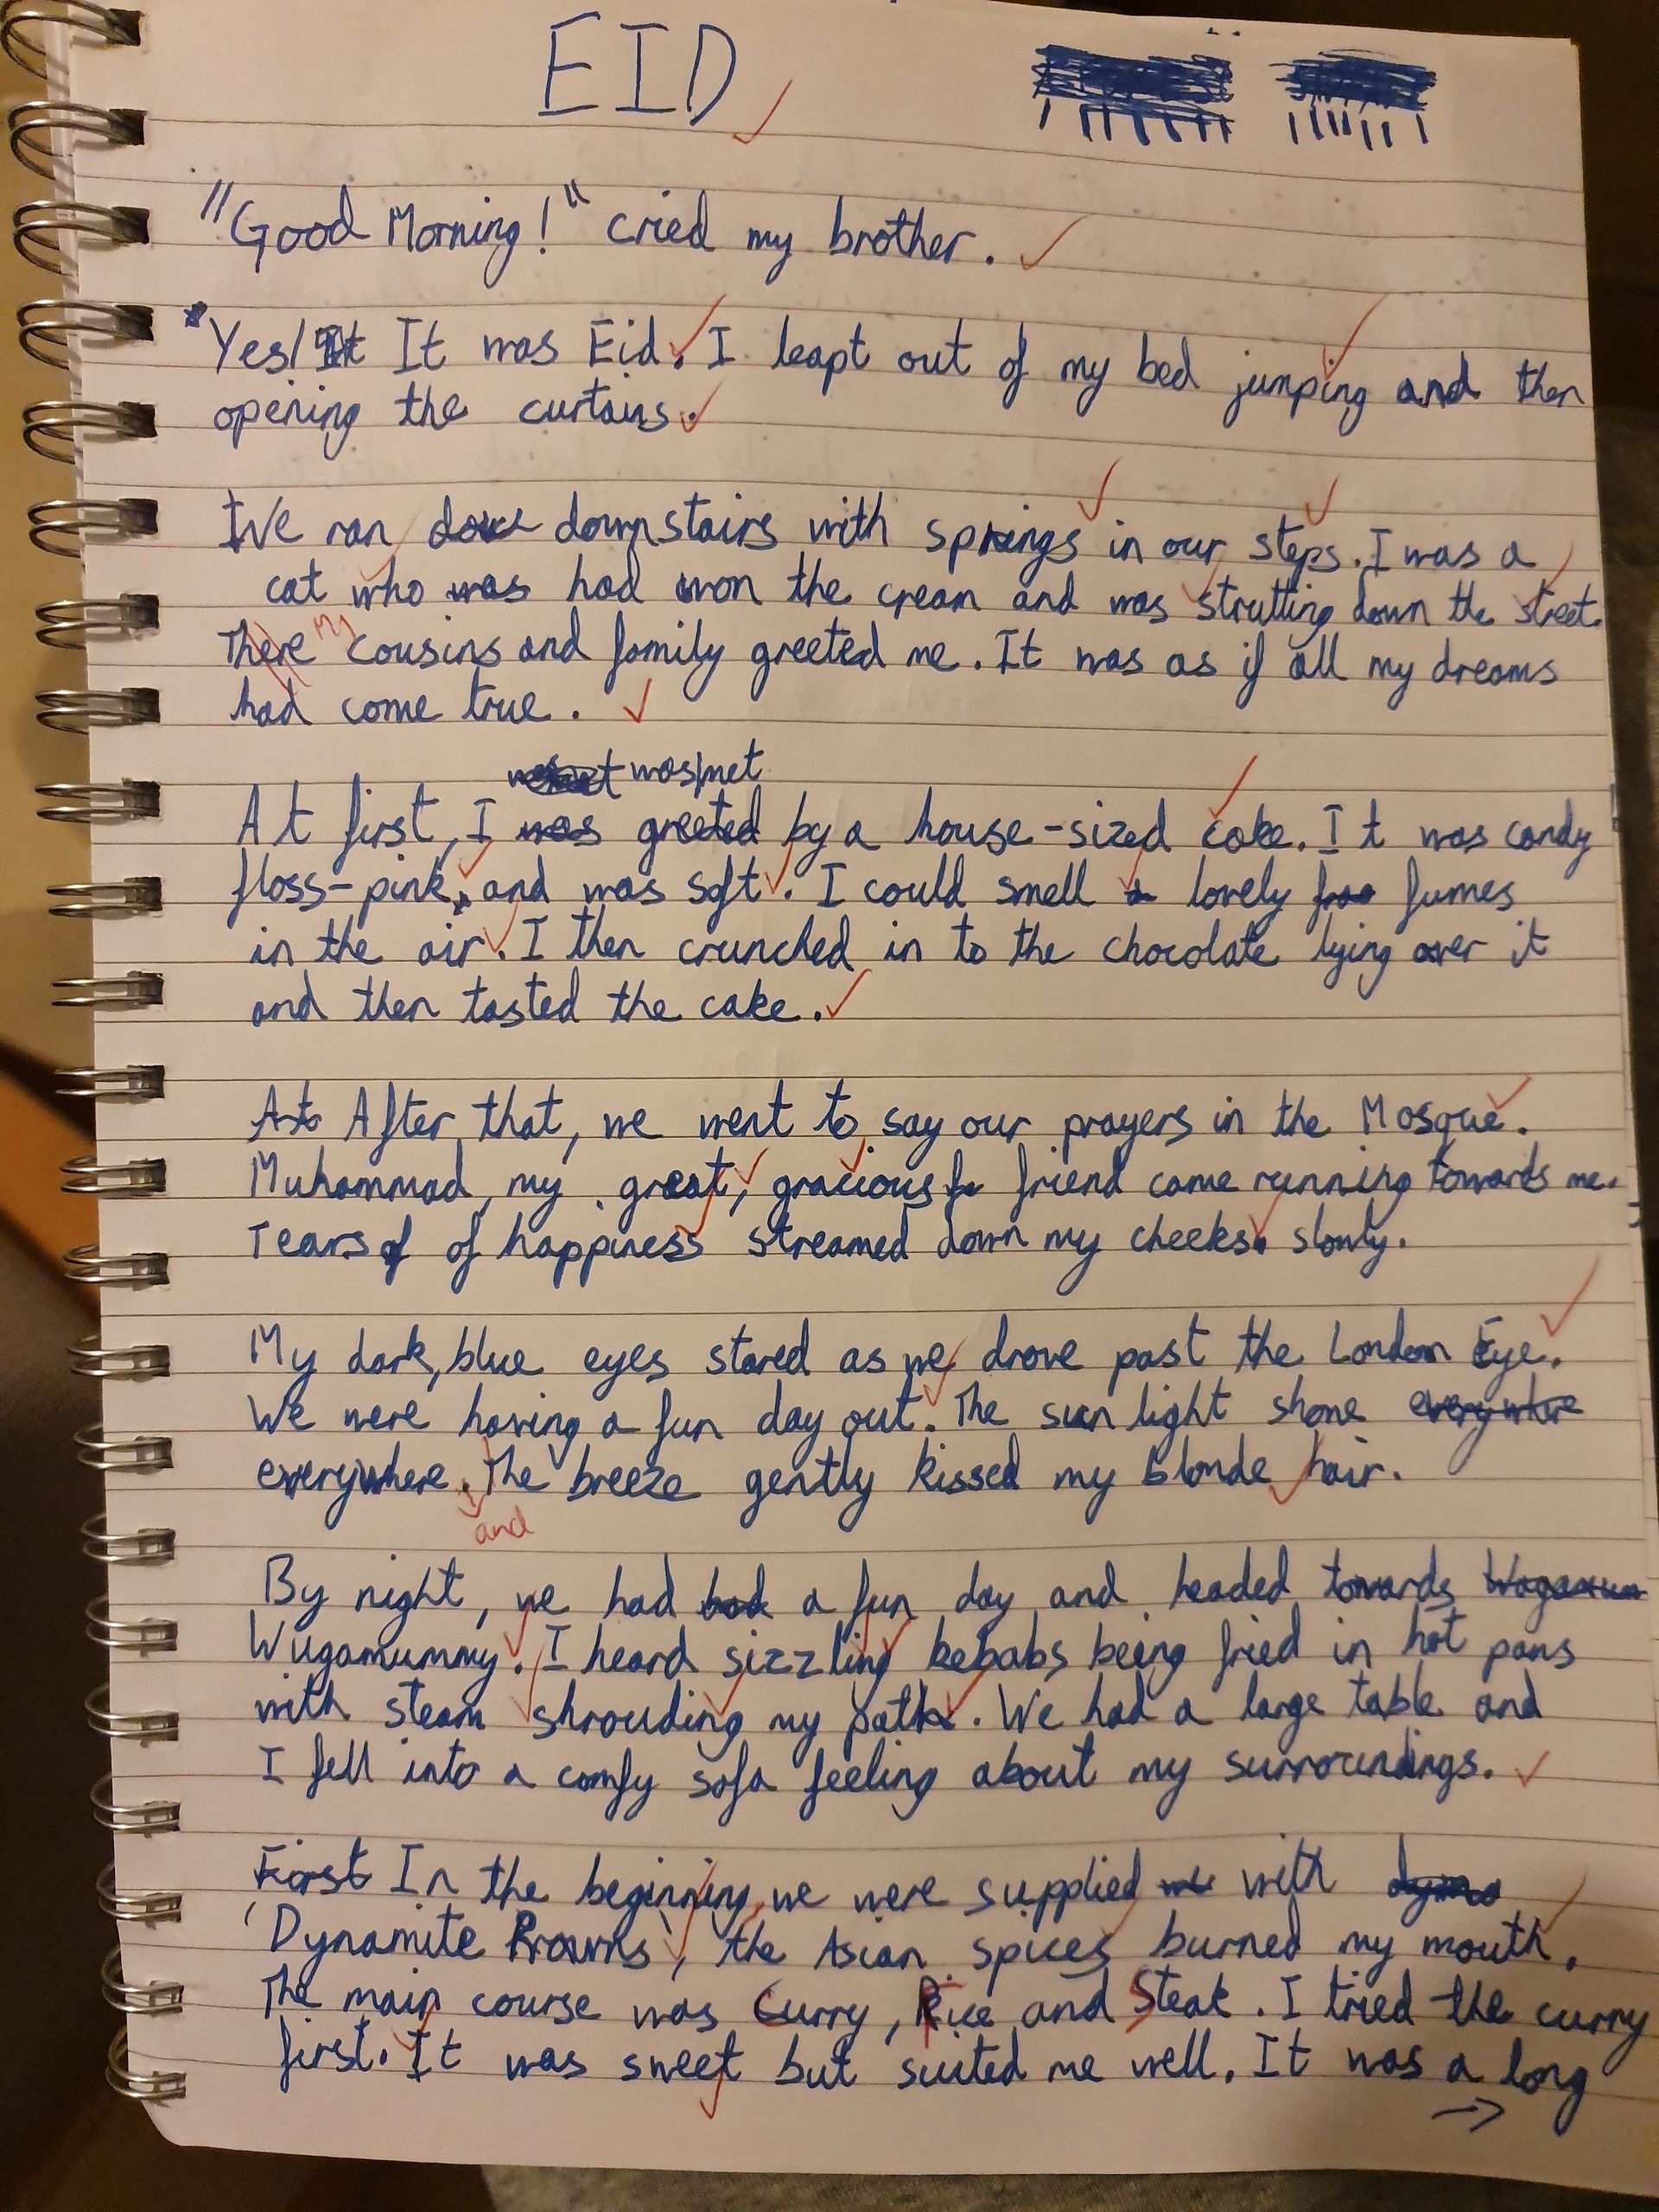 EID
"Good Morning!" cried my brother.
Yes! It was Eid. I leapt out of my bed jumping and then
opening the curtains.
We ran down downstairs with springs in our steps. I was a
cat who was had won the cream and was strutting down the street.
There My cousins and family greeted me. It was as if all my dreams
had come true.
was met
At first, I was greeted by a house-sized cake. It was candy
floss-pink, and was soft. I could smell a lovely fumes
in the air. I then crunched in to the chocolate lying over it
and then tasted the cake.
At After that, we went to say our prayers in the Mosque.
Muhammad, my great, gracious friend came running towards me.
Tears of happiness streamed down my cheeks slowly.
My dark, blue eyes stared as we drove past the London Eye.
We were having a fun day out. The sun light shone everywhere
everywhere. The breeze gently kissed my blonde hair.
and
By night, we had had a fun day and headed towards
Wugamummy. I heard sizzling kebabs being fried in hot pans
with steam shrouding my path. We had a large table and
I fell into a comfy sofa feeling about my surroundings.
First In the beginning, we were supplied with
'Dynamite Prawns', the Asian spices burned my mouth.
The main course was Curry, Rice and Steak. I tried the curry
first. It was sweet but suited me well. It was a long
→